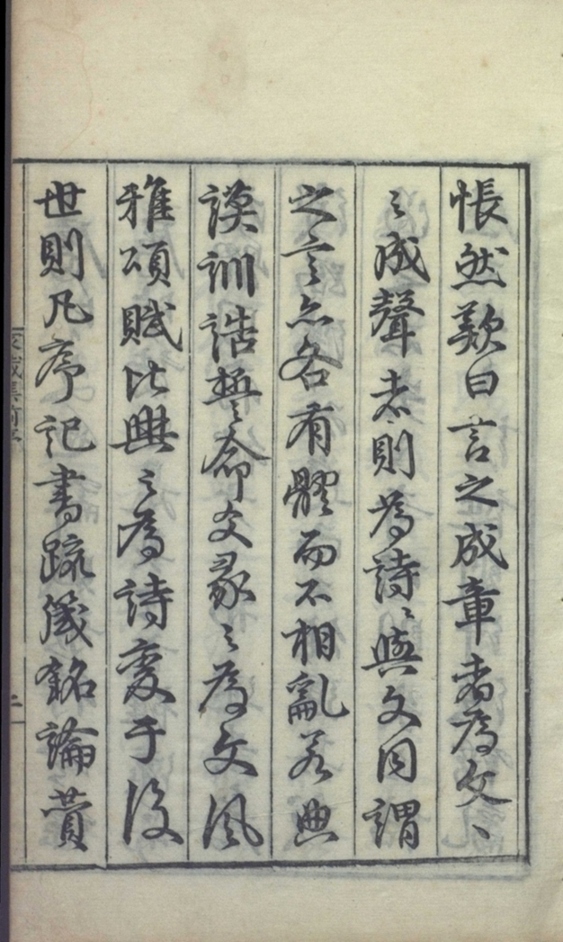 悵然歎曰言之成章者為文〻
之成聲者則為詩〻與文同謂
之言亦各有體而不相亂若典
謨訓誥誓命爻彖之為文風
雅頌賦比興之為詩变于後
世則凡序記書疏箴銘論贊
二